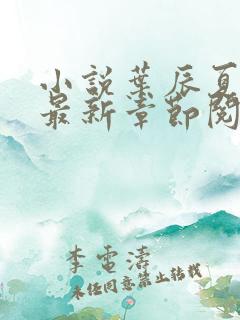 小說葉辰夏
最新章節閱
李電濤
未经同意禁止转载